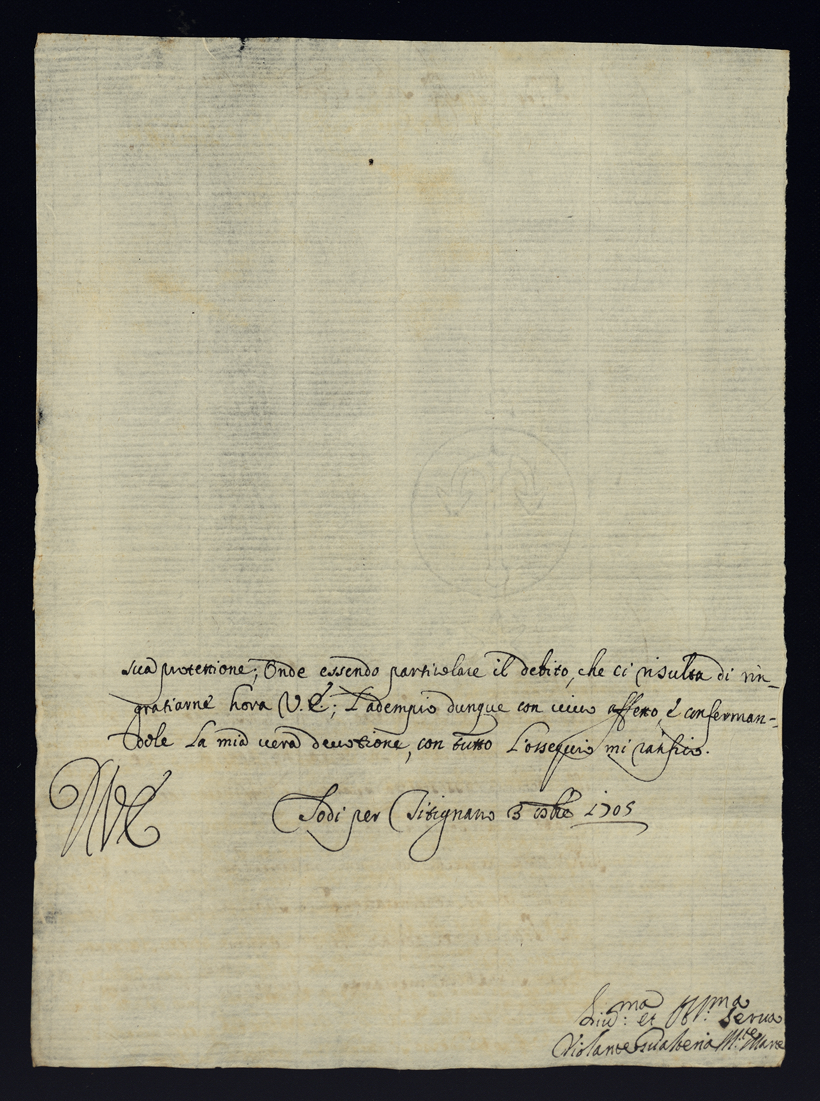 sua protettione; Onde essendo particolare il debito, che ci risulta di rin-
gratiarne hora V.E; L'adempio dunque con vivo affetto, e conferman-
dole la mia vera devotione, con tutto l'ossequio mi ratifico.
DVE
Todi per Titignano 3 8bre 1705
Div:ma et Obl:ma Serva
Violante Gualteria M:te Mare